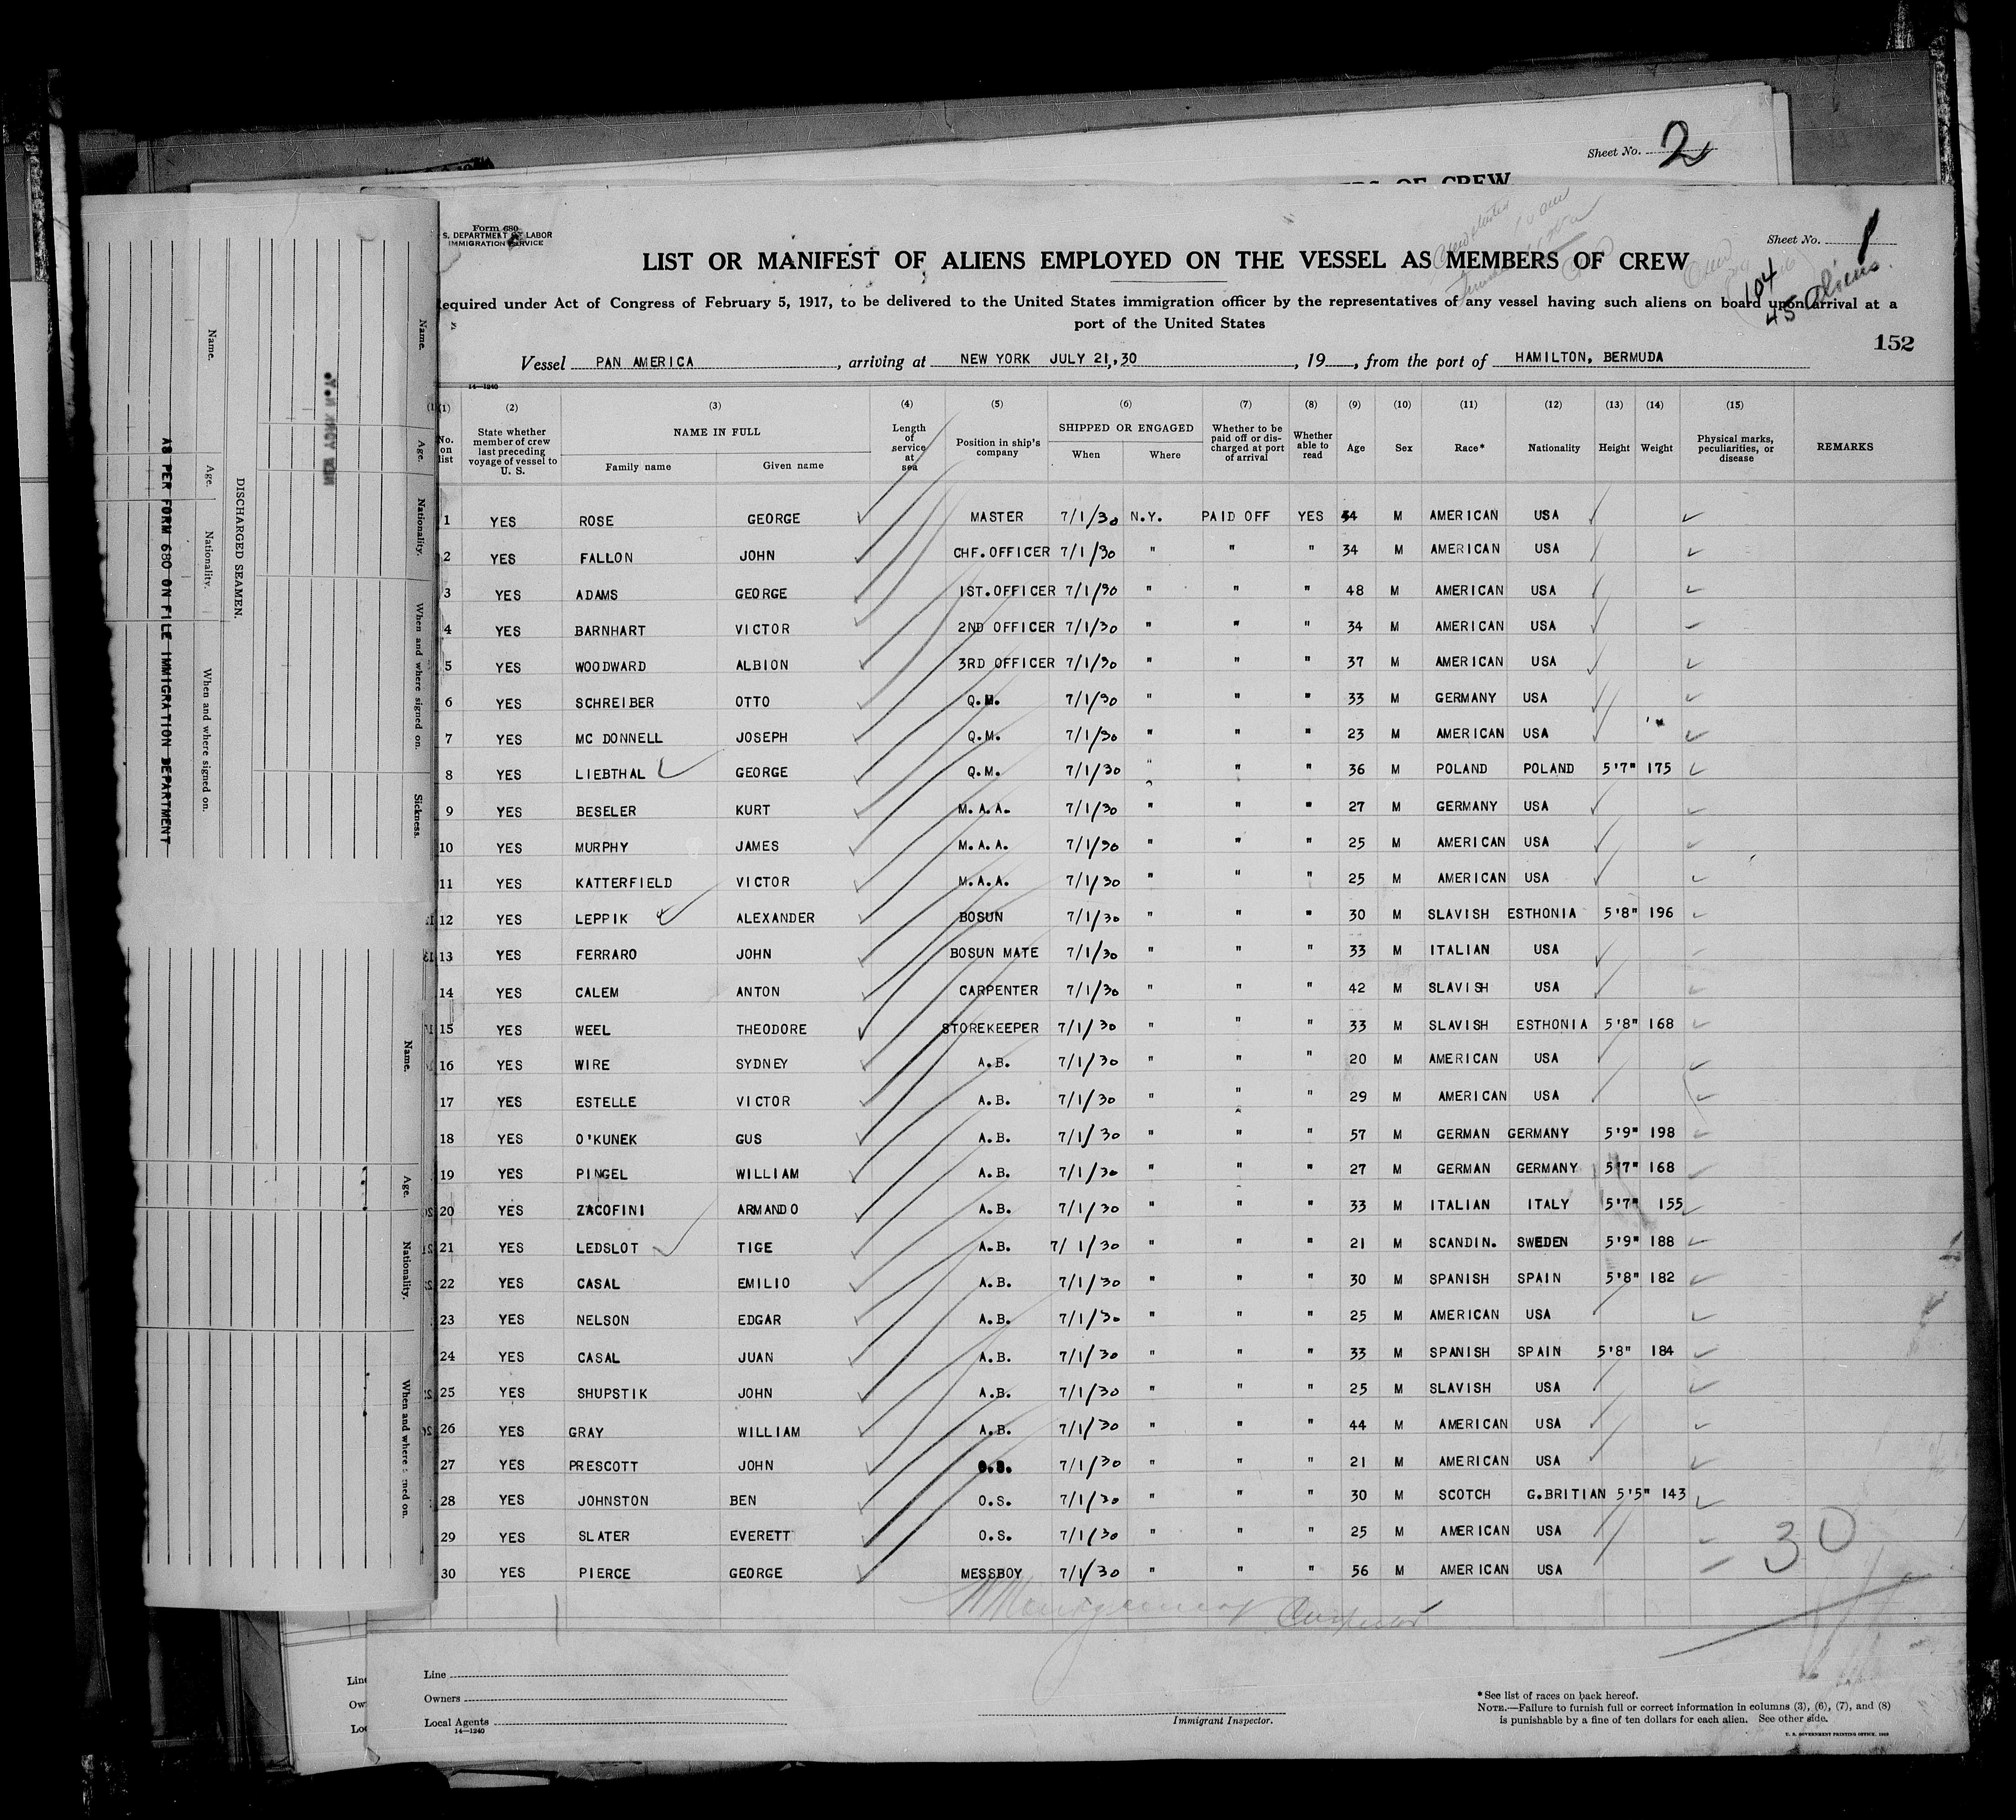 Sheet No. 2
Form 680
S. DEPARTMENT OF LABOR
IMMIGRATION SERVICE
Sheet No. 1
LIST OR MANIFEST OF ALIENS EMPLOYED ON THE VESSEL AS MEMBERS OF CREW
104
45 Aliens.
equired under Act of Congress of February 5, 1917, to be delivered to the United States immigration officer by the representatives of any vessel having such aliens on board upon arrival at a
port of the United States
152
Vessel PAN AMERICA, arriving at NEW YORK JULY 21,.30, 19, from the port of HAMILTON, BERMUDA
14—1240
(1) (2) (3) (4) (5) (6) (7) (8) (9) (10) (11) (12) (13) (14) (15)
No. on list
State whether member of crew last preceding voyage of vessel to U. S.
NAME IN FULL
Family name Given name
Length of service at sea
Position in ship's company
SHIPPED OR ENGAGED
When Where
Whether to be paid off or discharged at port of arrival
Whether able to read
Age Sex Race* Nationality Height Weight
Physical marks, peculiarities, or disease
REMARKS
1 YES ROSE GEORGE MASTER 7/1/30 N.Y. PAID OFF YES 54 M AMERICAN USA
2 YES FALLON JOHN CHF.OFFICER 7/1/30 " " " 34 M AMERICAN USA
3 YES ADAMS GEORGE 1ST.OFFICER 7/1/30 " " " 48 M AMERICAN USA
4 YES BARNHART VICTOR 2ND OFFICER 7/1/30 " " " 34 M AMERICAN USA
5 YES WOODWARD ALBION 3RD OFFICER 7/1/30 " " " 37 M AMERICAN USA
6 YES SCHREIBER OTTO Q.M. 7/1/30 " " " 33 M GERMANY USA
7 YES MC DONNELL JOSEPH Q.M. 7/1/30 " " " 23 M AMERICAN USA
8 YES LIEBTHAL GEORGE Q.M. 7/1/30 " " " 36 M POLAND POLAND 5'7" 175
9 YES BESELER KURT M.A.A. 7/1/30 " " " 27 M GERMANY USA
10 YES MURPHY JAMES M.A.A. 7/1/30 " " " 25 M AMERICAN USA
11 YES KATTERFIELD VICTOR M.A.A. 7/1/30 " " " 25 M AMERICAN USA
12 YES LEPPIK ALEXANDER BOSUN 7/1/30 " " " 30 M SLAVISH ESTHONIA 5'8" 196
13 YES FERRARO JOHN BOSUN MATE 7/1/30 " " " 33 M ITALIAN USA
14 YES CALEM ANTON CARPENTER 7/1/30 " " " 42 M SLAVISH USA
15 YES WEEL THEODORE STOREKEEPER 7/1/30 " " " 33 M SLAVISH ESTHONIA 5'8" 168
16 YES WIRE SYDNEY A.B. 7/1/30 " " " 20 M AMERICAN USA
17 YES ESTELLE VICTOR A.B. 7/1/30 " " " 29 M AMERICAN USA
18 YES O'KUNEK GUS A.B. 7/1/30 " " " 57 M GERMAN GERMANY 5'9" 198
19 YES PINGEL WILLIAM A.B. 7/1/30 " " " 27 M GERMAN GERMANY 5'7" 168
20 YES ZACOFINI ARMANDO A.B. 7/1/30 " " " 33 M ITALIAN ITALY 5'7" 155
21 YES LEDSLOT TIGE A.B. 7/1/30 " " " 21 M SCANDIN. SWEDEN 5'9" 188
22 YES CASAL EMILIO A.B. 7/1/30 " " " 30 M SPANISH SPAIN 5'8" 182
23 YES NELSON EDGAR A.B. 7/1/30 " " " 25 M AMERICAN USA
24 YES CASAL JUAN A.B. 7/1/30 " " " 33 M SPANISH SPAIN 5'8" 184
25 YES SHUPSTIK JOHN A.B. 7/1/30 " " " 25 M SLAVISH USA
26 YES GRAY WILLIAM A.B. 7/1/30 " " " 44 M AMERICAN USA
27 YES PRESCOTT JOHN 7/1/30 " " " 21 M AMERICAN USA
28 YES JOHNSTON BEN O.S. 7/1/30 " " " 30 M SCOTCH G.BRITIAN 5'5" 143
29 YES SLATER EVERETT O.S. 7/1/30 " " " 25 M AMERICAN USA
30 YES PIERCE GEORGE MESSBOY 7/1/30 " " " 56 M AMERICAN USA
30
Line
Owners
Local Agents
14—1240
Immigrant Inspector.
*See list of races on back hereof.
NOTE.—Failure to furnish full or correct information in columns (3), (6), (7), and (8)
is punishable by a fine of ten dollars for each alien. See other side.
U. S. GOVERNMENT PRINTING OFFICE
Name. Age. Nationality. When and where signed on. Sickness.
DISCHARGED SEAMEN.
Name. Age. Nationality. When and where signed on.
AS PER FORM 680 ON FILE IMMIGRATION DEPARTMENT
Name. Age. Nationality. When and where